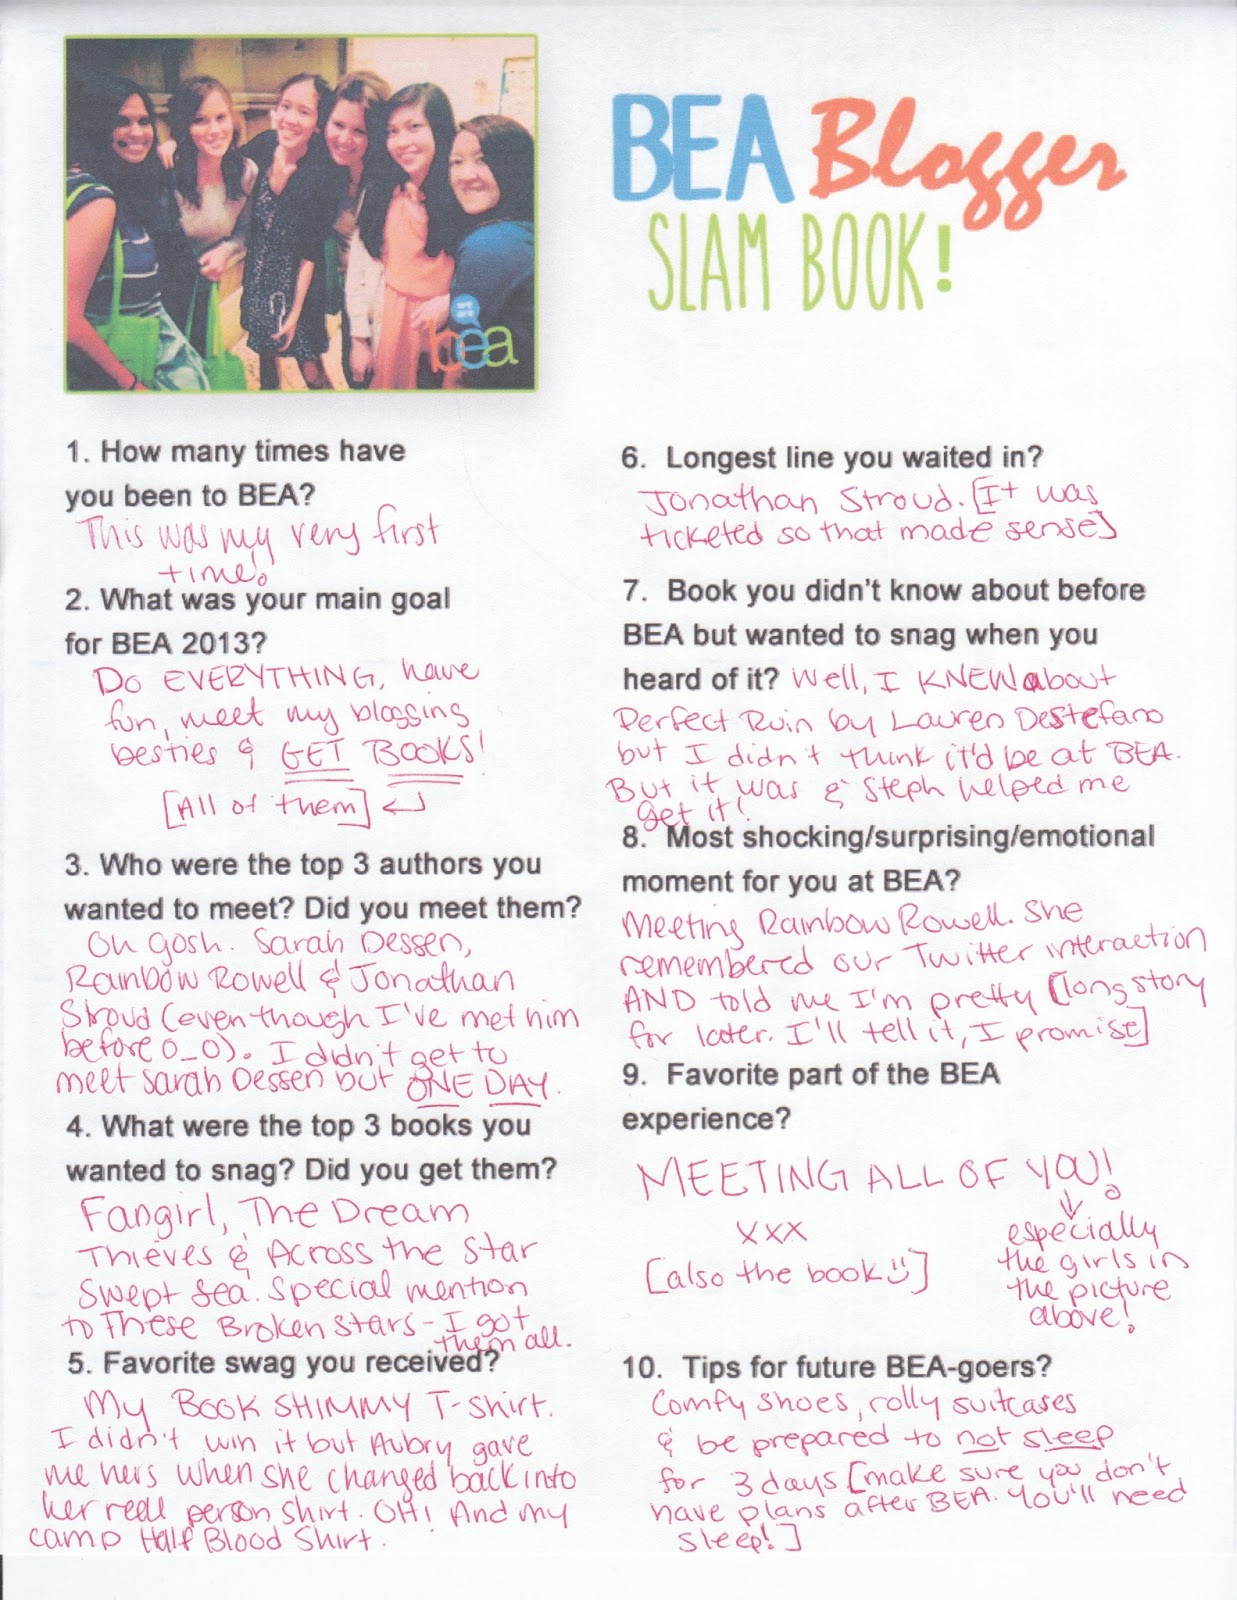 we are
bea
BEA Blogger
SLAM BOOK!
1. How many times have
you been to BEA?
This was my very first
time!
2. What was your main goal
for BEA 2013?
Do EVERYTHING, have
fun, meet my blogging
besties & GET BOOKS!
[All of them]
3. Who were the top 3 authors you
wanted to meet? Did you meet them?
Oh gosh. Sarah Dessen,
Rainbow Rowell & Jonathan
Stroud (even though I've met him
before O_O). I didn't get to
meet Sarah Dessen but ONE DAY.
4. What were the top 3 books you
wanted to snag? Did you get them?
Fangirl, The Dream
Thieves & Across the Star
Swept Sea. Special mention
to These Broken Stars - I got
them all.
5. Favorite swag you received?
My BOOK SHIMMY T-shirt.
I didn't win it but Aubry gave
me hers when she changed back into
her reall person shirt. OH! And my
camp Half Blood Shirt.
6. Longest line you waited in?
Jonathan Stroud. [It was
ticketed so that made sense]
7. Book you didn't know about before
BEA but wanted to snag when you
heard of it? Well, I KNEW about
Perfect Ruin by Lauren DeStefano
but I didn't think it'd be at BEA.
But it was & Steph helped me
get it!
8. Most shocking/surprising/emotional
moment for you at BEA?
Meeting Rainbow Rowell. She
remembered our Twitter interaction
AND told me I'm pretty [long story
for later. I'll tell it, I promise]
9. Favorite part of the BEA
experience?
MEETING ALL OF YOU!
xxx
[also the book]
especially
the girls in
the picture
above!
10. Tips for future BEA-goers?
Comfy shoes, rolly suitcases
& be prepared to not sleep
for 3 days [make sure you don't
have plans after BEA. You'll need
sleep!]